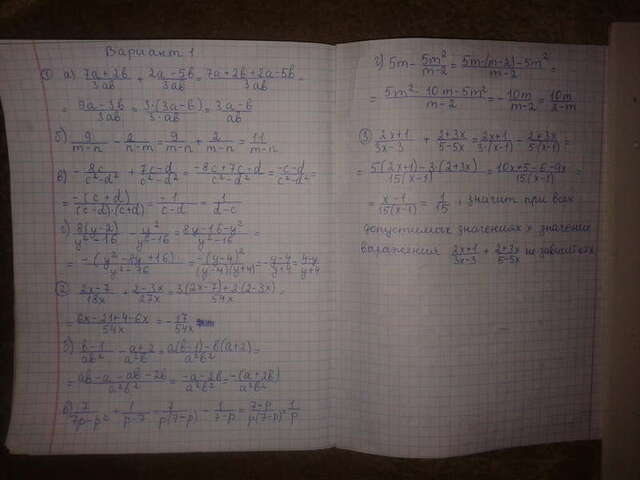 Вариант 1
① а) (7a+2b)/3ab + (2a-5b)/3ab = (7a+2b+2a-5b)/3ab =
= (9a-3b)/3ab = 3·(3a-b)/3·ab = (3a-b)/ab
б) 9/(m-n) - 2/(n-m) = 9/(m-n) + 2/(m-n) = 11/(m-n)
в) -8c/(c²-d²) + (7c-d)/(c²-d²) = (-8c+7c-d)/(c²-d²) = (-c-d)/(c²-d²) =
= -(c+d)/(c-d)·(c+d) = -1/(c-d) = 1/(d-c)
8(y-2)/(y²-16) - y²/(y²-16) = (8y-16-y²)/(y²-16) =
= -(y²-8y+16)/(y²-16) = -(y-4)²/(y-4)(y+4) = -(y-4)/(y+4) = (4-y)/(y+4)
② (2x-7)/18x + (2-3x)/27x = (3(2x-7)+2(2-3x))/54x =
= (6x-21+4-6x)/54x = -17/54x
б) (b-1)/ab² - (a+2)/a²b = (a(b-1)-b(a+2))/a²b² =
= (ab-a-ab-2b)/a²b² = (-a-2b)/a²b² = -(a+2b)/a²b²
в) 7/(7p-p²) + 1/(p-7) = 7/p(7-p) - 1/(7-p) = (7-p)/p(7-p) = 1/p
г) 5m - 5m²/(m-2) = (5m·(m-2)-5m²)/(m-2) =
= (5m²-10m-5m²)/(m-2) = -10m/(m-2) = 10m/(2-m)
③ (2x+1)/(3x-3) + (2+3x)/(5-5x) = (2x+1)/3(x-1) - (2+3x)/5(x-1) =
= (5(2x+1)-3(2+3x))/15(x-1) = (10x+5-6-9x)/15(x-1) =
= (x-1)/15(x-1) = 1/15, значит при всех
допустимых значениях x значение
выражения (2x+1)/(3x-3) + (2+3x)/(5-5x) не зависит от x